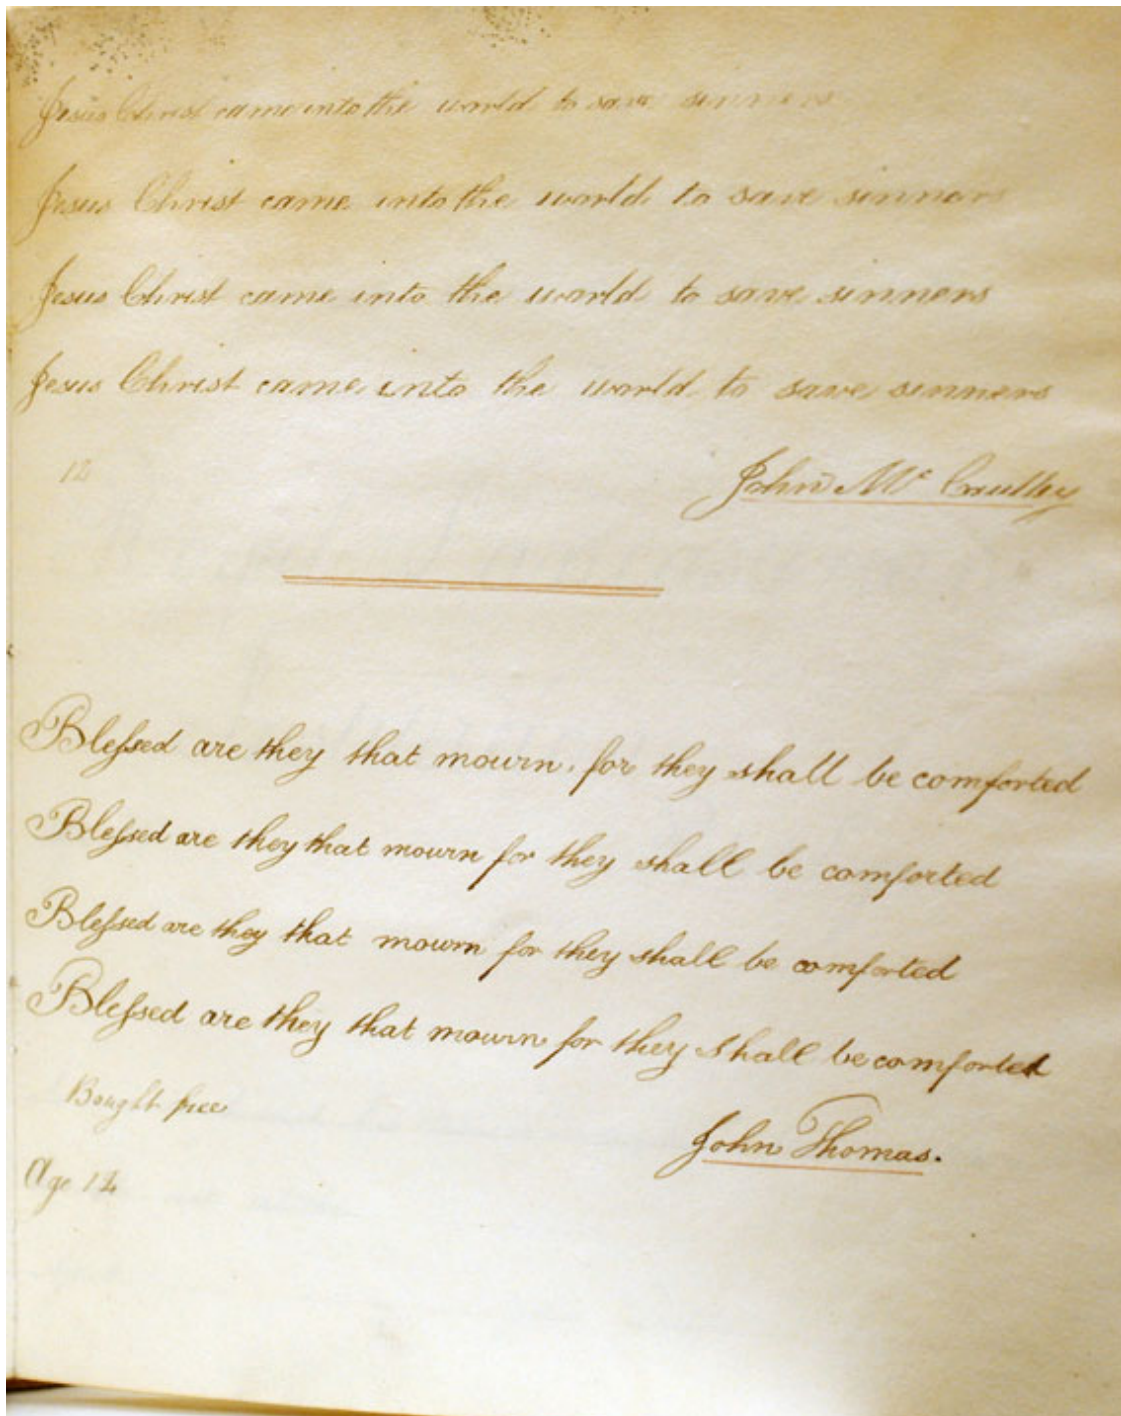 Jesus Christ came into the world to save sinners
Jesus Christ came into the world to save sinners
Jesus Christ came into the world to save sinners
Jesus Christ came into the world to save sinners
12
John Mc
Blessed are they that mourn. for they shall be comforted
Blessed are they that mourn for they shall be comforted
Blessed are they that mourn for they shall be comforted
Blessed are they that mourn for they shall be comforted
Bought free
John Thomas.
Age 12